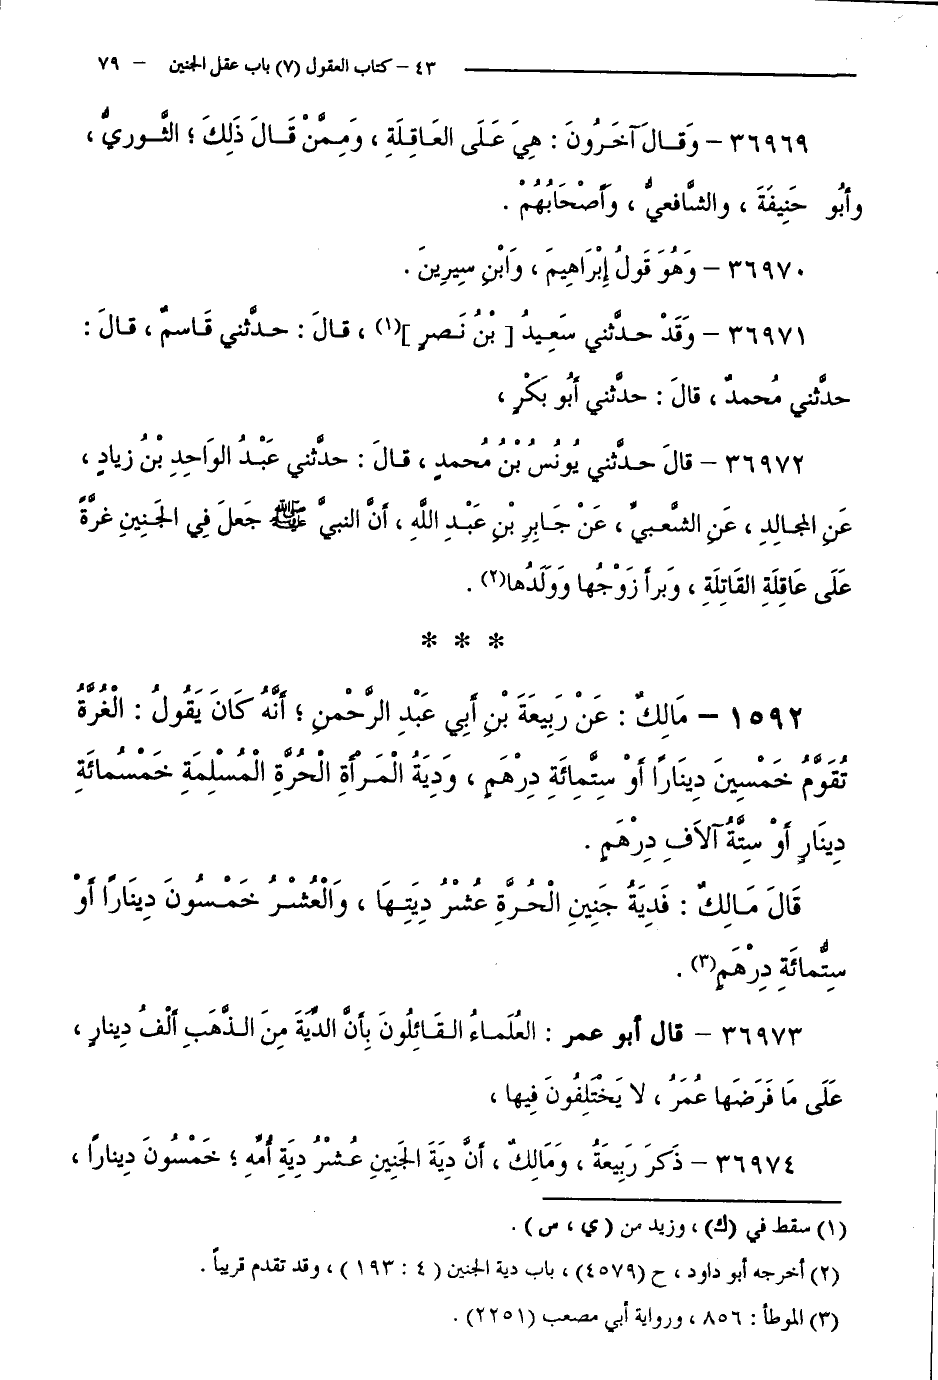 ٤٣ – كتاب العقول (٧) باب عقل الجنين – ٧٩
٣٦٩٦٩ – وَقَالَ آخَرُونَ : هِيَ عَلَى العَاقِلَةِ ، وَمِمَّنْ قَالَ ذَلِكَ ؛ الثَّورِيُّ ،
وأَبُو حَنِيفَةَ ، والشَّافعيُّ ، وَأَصْحَابُهُمْ .
٣٦٩٧٠ – وَهُوَ قَولُ إِبْرَاهِيمَ ، وَابْنِ سِيرِينَ .
٣٦٩٧١ – وَقَدْ حدَّثني سَعِيدُ [ بْنُ نَصرٍ ](١) ، قالَ : حدَّثني قَاسمٌ ، قالَ :
حدَّثني مُحمدٌ ، قالَ : حدَّثني أَبُو بَكْرٍ ،
٣٦٩٧٢ – قالَ حدَّثني يُونُسُ بْنُ مُحمدٍ ، قالَ : حدَّثني عَبْدُ الوَاحِدِ بْنُ زيادٍ ،
عَنِ المجالِدِ ، عَنِ الشَّعبيِّ ، عَنْ جَابِرِ بْنِ عَبْدِ اللَّهِ ، أَنَّ النبيَّ ﷺ جَعلَ فِي الجَنِينِ غرَّةً
عَلَى عَاقِلَةِ القَاتِلَةِ ، وَبرأ زَوْجُها وَوَلَدُها(٢) .
* * *
١٥٩٢ – مَالِكٌ : عَنْ رَبِيعَةَ بْنِ أَبِي عَبْدِ الرَّحْمنِ ؛ أَنَّهُ كَانَ يَقُولُ : الْغُرَّةُ
تُقَوَّمُ خَمْسِينَ دِينَارًا أَوْ سِتَّمِائَةِ دِرْهَمٍ ، وَدِيَةُ الْمَرْأَةِ الْحُرَّةِ الْمُسْلِمَةِ خَمْسُمائَةِ
دِينَارٍ أَوْ سِتَّةُ آلاَفِ دِرْهَمٍ .
قَالَ مَالِكٌ : فَدِيَةُ جَنِينِ الْحُرَّةِ عُشْرُ دِيَتِهَا ، وَالْعُشْرُ خَمْسُونَ دِينَارًا أَوْ
سِتُّمائَةِ دِرْهَمٍ(٣) .
٣٦٩٧٣ – قال أبو عمر : العُلَماءُ القَائِلُونَ بِأَنَّ الدِّيَةَ مِنَ الذَّهَبِ أَلْفُ دِينارٍ ،
عَلَى مَا فَرَضَها عُمَرُ ، لا يَخْتَلِفُونَ فِيها ،
٣٦٩٧٤ – ذَكَرَ رَبِيعَةُ ، وَمَالِكٌ ، أَنَّ دِيَةَ الجَنِينِ عُشْرُ دِيَةِ أُمِّهِ ؛ خَمْسُونَ دِينارًا ،
(١) سقط في (ك) ، وزيد من ( ي ، س ) .
(٢) أخرجه أبو داود ، ح (٤٥٧٩) ، باب دية الجنين ( ٤ : ١٩٣ ) ، وقد تقدم قريباً .
(٣) الموطأ : ٨٥٦ ، ورواية أبي مصعب (٢٢٥١) .